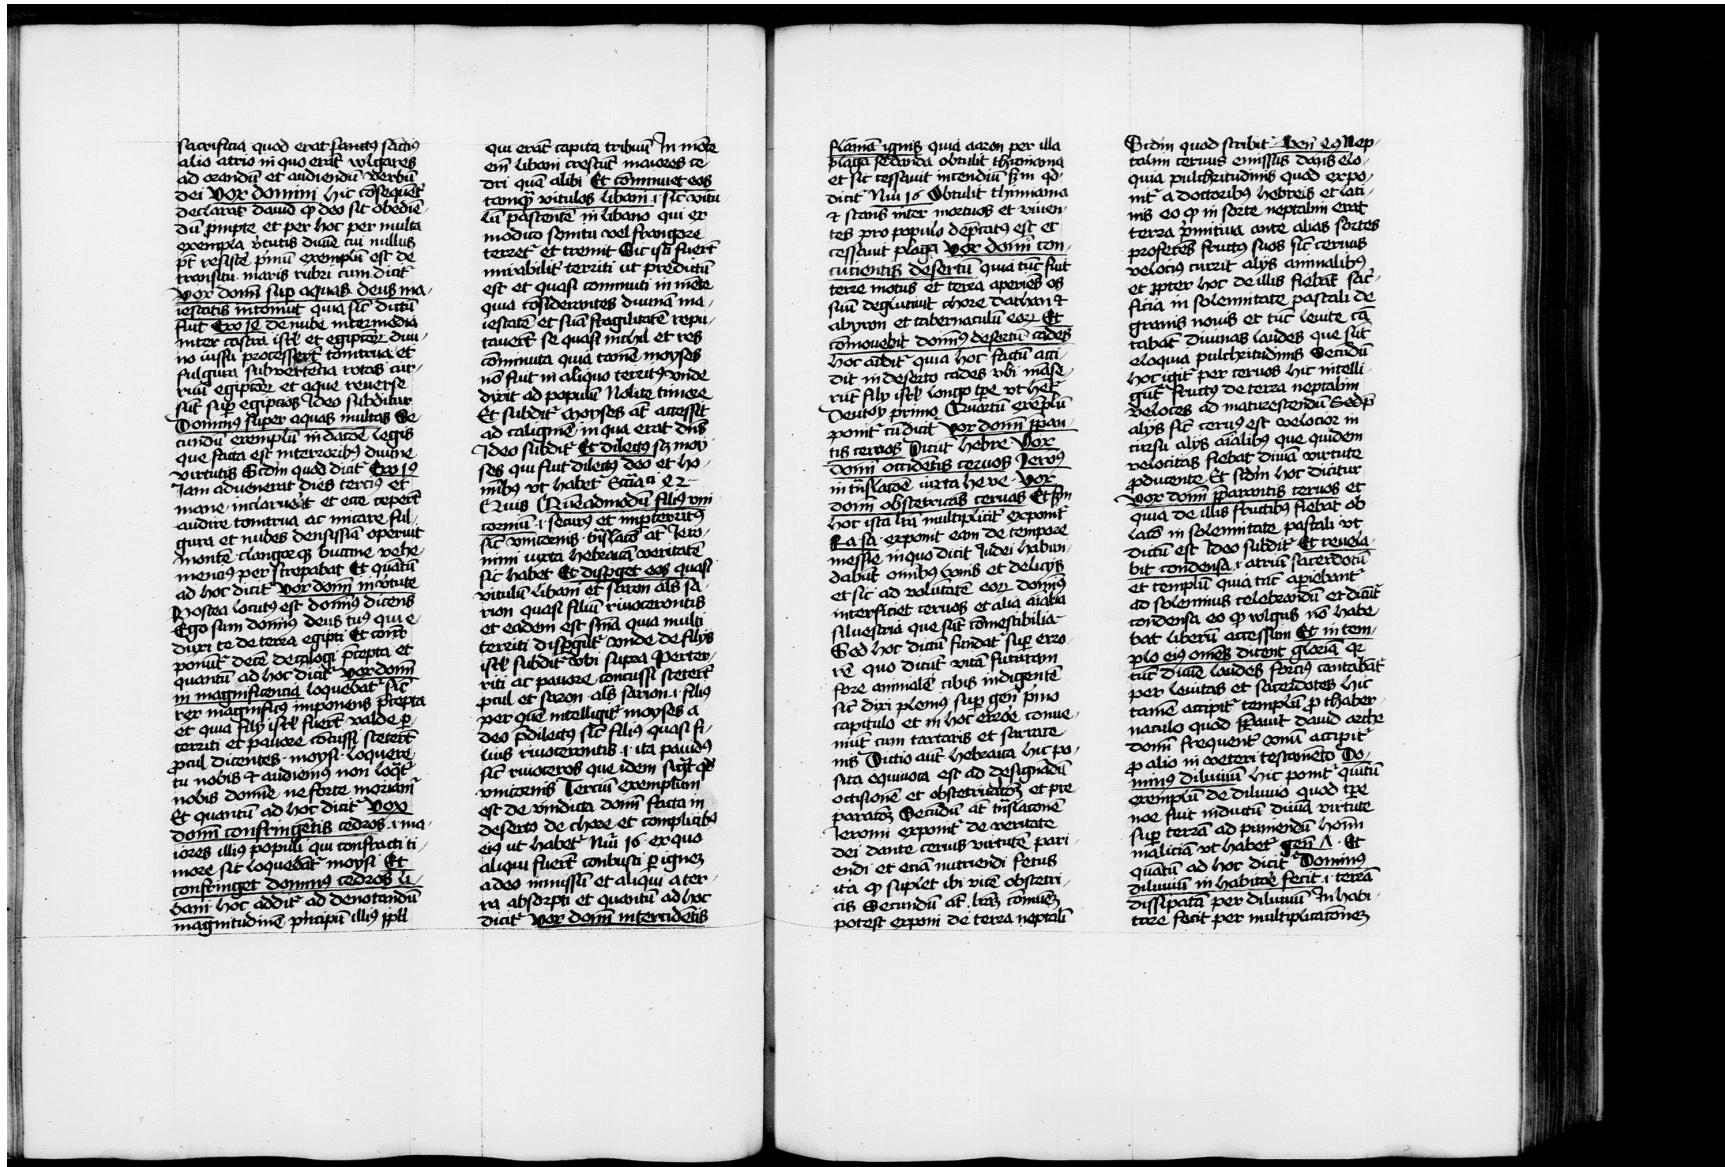 sacrificia quod erat sanctus sanctius
alio atrio in quo erāt vulgares
ad orandū et audiendū verbū
dei Vox domini hic cōsequēt̄
declarat̄ dauid ꝙ deo sit obediē-
dū p̄mpte et per hoc per multa
exempla v̄tutis diuīe cui nullus
pt̄ resistē p̄mū exemplū est de
transitu maris rubri cum dicit̄
vox domī sup̄ aquas deus ma-
iestatis intonuit quia sic̄ dictū
fuit Exo 14 de nube intermedia
inter castra isrl̄ et egiptioꝝ diui-
no iussu processerūt tonitrua et
fulgura subvertēcia rotas cur-
ruū egiptioꝝ et aque reuerse
sūt sup̄ egiptios Ideo subditur
Dominus super aquas multas Se-
cundū exemplū in dacōe legis
que facta est in terroribꝫ diuine
virtutis Scd̄m quod dicit̄ Exo 19
Iam aduenerat dies tercius et
mane inclaruerat et ecce ceperūt
audire tonitrua ac micare ful-
gura et nubes densissīa operuit
montē clangorqꝫ buccine vehe-
mencius perstrepabat Et quātū
ad hoc dicit̄ vox domī in v̄tute
Postea locutus est domī9 dicens
Ego sum domin9 deus tuus qui e-
duxi te de terra egipti Et cont̄
ponūt decē decalogi p̄cepta et
quantū ad hoc dicit̄ vox domī
in magnificencia loquebat̄ sic̄
rex magnificus imponens p̄cepta
et quia filij isrl̄ fuerūt valde p̄-
territi et pauore cōcussi steterūt
p̄cul dicentes moysi loquere
tu nobis et audiemus non loq̄t̄
nobis domine ne forte moriam̄
Et quantū ad hoc dicit̄ Vox
domī confringētis cedros .i. ma-
iores illius populi qui confracti ti-
more sic loquebāt̄ moysi Et
confringet dominus cedros li-
bani hoc addit̄ ad denotandū
magnitudinē p̄ncipum illius ppl̄i
qui erāt capita tribuū In mōte
eī libani crescūt maiores ce-
dri quā alibi Et cōminuet eos
tamqꝫ vitulos libani .i. sic̄ vitu-
lū pascentē in libano qui ex
modico sonitu vel frangore
terret̄ et tremit Sic isti fuerūt
mirabilit̄ territi ut predictū
est et quasi cōminuti in mēte
quia cōsiderantes diuinā ma-
iestatē et suā fragilitatē repu-
tauerūt se quasi nichil et res
cōminuta quia tamē moyses
nō fuit in aliquo territus vnde
dixit ad populū Nolite timere
Et subdit̄ Moyses at̄ accessit
ad caliginē in qua erat dn̄s
Ideo subdit̄ Et dilectus sꝫ moy-
ses qui fuit dilectus deo et ho-
mībus vt habet̄
filius vni-
cornium .i. securus et imp̄territus
sic̄ vnicornis trāslacō at̄ Iero-
nimi iuxta hebraicā veritatē
sic habet Et disperget eos quasi
vitulum libani et saron als̄ sa-
rion quasi filiū rinocerontis
et eadem est sn̄ia quia multi
territi disp̄gūt̄ vnde de filijs
isrl̄ subdit̄ vbi supra Perter-
riti ac pauore concussi steterūt
p̄cul et saron als̄ sarion .i. filius
per quē intelligit̄ moyses a
deo p̄dilectus sic̄ filius quasi fi-
lius rinocerontis .i. ita pauidus
sic̄ rinoceros que idem sig̅t qd̄
vnicornis Tercium exemplum
est de vindicta domī facta in
deserto de chore et complicibꝫ
eius ut habet̄ Nūi 16 ex quo
aliqui fuerūt conbusti p̄ ignem
a deo immissū et aliqui a ter-
ra absorpti et quantū ad hoc
dicit̄ vox domī intercidētis
flāmā ignis quia aaron per illa
plaga sedanda obtulit thimiama
et sic cessauit incendiū scd̄m qd̄
dicit̄ Nūi 16 Obtulit thimiama
et stans inter mortuos et viuen-
tes pro populo dep̄catus est et
cessauit plaga Vox domī con-
cucientis desertū quia tūc fuit
terre motus et terra aperiēs os
suū deglutiuit chore dathan et
abyron et tabernaculū eoꝝ Et
cōmouebit domī9 desertū cades
hoc addit̄ quia hoc factū acci-
dit in deserto cades vbi māse-
rūt filij isrl̄ longo tp̄e vt het̄
Deutoȳ primo Quartū exēplū
ponit̄ cū dicit̄ vox domī p̄pan-
tis ceruos Dicit̄ hebre Vox
domī occidētis ceruos
in trāslacōe iuxta hebre vox
domī obstetricās ceruas Et scd̄m
hoc ista lr̄a multiplicit̄ exponit̄
Ra sa exponit eam de tempore
messie in quo dicit Iudei habun-
dabūt omībus bonis et delicijs
et sic ad volūtatē eoꝝ domī9
interficiet ceruos et alia aīalia
siluestria que sūt comestibilia
Sed hoc dictū fundat̄ sup̄ erro-
rē quo dicūt vitā futuram
fore animalē cibis indigentē
sic̄ dixi plenius sup̄ gen̄ p̄mo
capitulo et in hoc errōe conue-
niūt cum tartaris et sarrace-
nis Dictio aut̄ hebraica hic po-
sita equiuoca est ad designādū
occisionē et obstetricacōꝫ et pre-
paracōꝫ Secūdū at̄ trāslacōnē
Ieronī exponit̄ de veritate
dei dante ceruis virtutē pari-
endi et eciā nutriendi fetus
ita ꝙ suplet ibi vicē obstetri-
cis Secundū at̄ lr̄am cōmunē
potest exponi de terra neptalī
Scd̄m quod scribit̄ Gen̄ 49 Nep-
talim ceruus emissus dans elo-
quia pulchritudinis quod expo-
nit̄ a doctoribus hebreis et lati-
nis eo ꝙ in sorte neptalim erat
terra p̄mitiua ante alias sortes
proferēs fructus suos sic̄ ceruus
velocius currit alijs animalibus
et p̄pter hoc de illis fiebāt sac̄-
ficia in solennitate pascali de
granis nouis et tūc leuite cā-
tabāt diuinas laudes que sūt
eloquia pulchritudinis Secūdū
hoc igit̄ per ceruos hic intelli-
gūt̄ fructus de terra neptalim
veloces ad maturescendū
alijs sic̄ ceruus est velocior in
cursu alijs aīalibus que quidem
velocitas fiebat diuīa virtute
p̄ducente Et scd̄m hoc dicitur
vox domī p̄parantis ceruos et
quia de illis fructibus fiebat ob-
lacō in solennitate pascali vt
dictū est Ideo subdit̄ Et reuela-
bit condensa .i. atriū sacerdotū
et templū quia tūc ap̄iebant̄
ad solennius celebrandū et dicit̄
condensa eo ꝙ vulgus nō habe-
bat liberū accessum Et in tem-
plo eius omēs dicent gloriā qr̄
tūc diuīe laudes forcius cantabāt̄
per leuitas et sacerdotes hic
tamē accipit̄ templū ꝓ thaber-
naculo quod p̄auit dauid arche
domī frequent̄ vnū accipit̄
ꝓ alio in veteri testamēto Do-
minus diluuiū hic ponit̄ quītū
exemplū de diluuio quod tp̄e
noe fuit inductū diuīa virtute
sup̄ terrā ad puniendū homī
maliciā vt habet̄ gen̄ Et
quātū ad hoc dicit̄ Dominus
diluuiū in habitāe fecit .i. terrā
dissipatā per diluuiū In habi-
tare fecit per multiplicacōnem